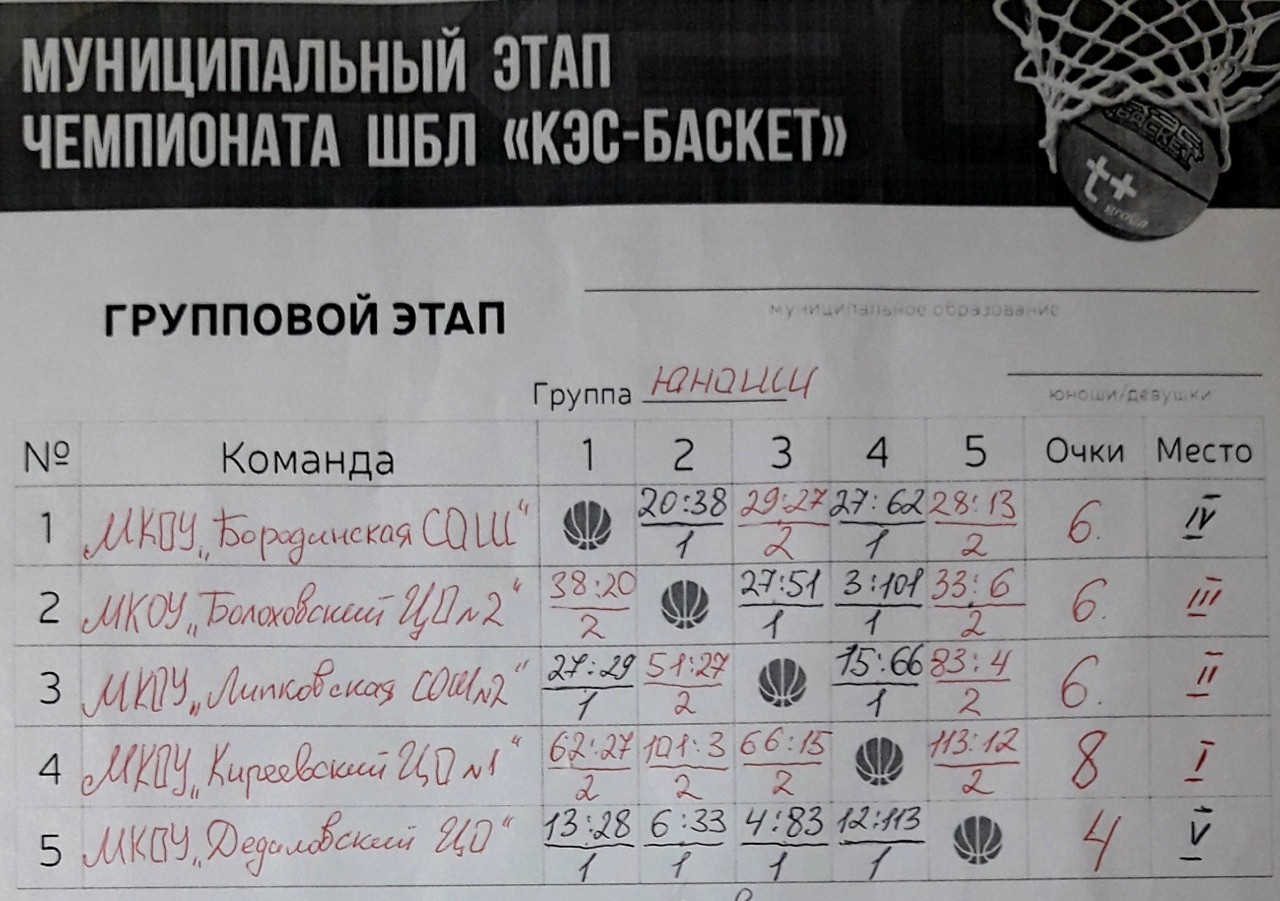 МУНИЦИПАЛЬНЫЙ ЭТАП
ЧЕМПИОНАТА ШБЛ «КЭС-БАСКЕТ»
BASKET
t+
group
ГРУППОВОЙ ЭТАП
муниципальное образование
Группа юноши
юноши/девушки
№ Команда 1 2 3 4 5 Очки Место
1 МКОУ „Бородинская СОШ“ 20:38 29:27 27:62 28:13 6. IV
1 2 1 2
2 МКОУ „Болоховский ЦО №2“ 38:20 27:51 3:101 33:6 6. III
2 1 1 2
3 МКОУ „Липковская СОШ №2“ 27:29 51:27 15:66 83:4 6. II
1 2 1 2
4 МКОУ „Киреевский ЦО №1“ 62:27 101:3 66:15 113:12 8 I
2 2 2 2
5 МКОУ „Дедиловский ЦО“ 13:28 6:33 4:83 12:113 4 V
1 1 1 1